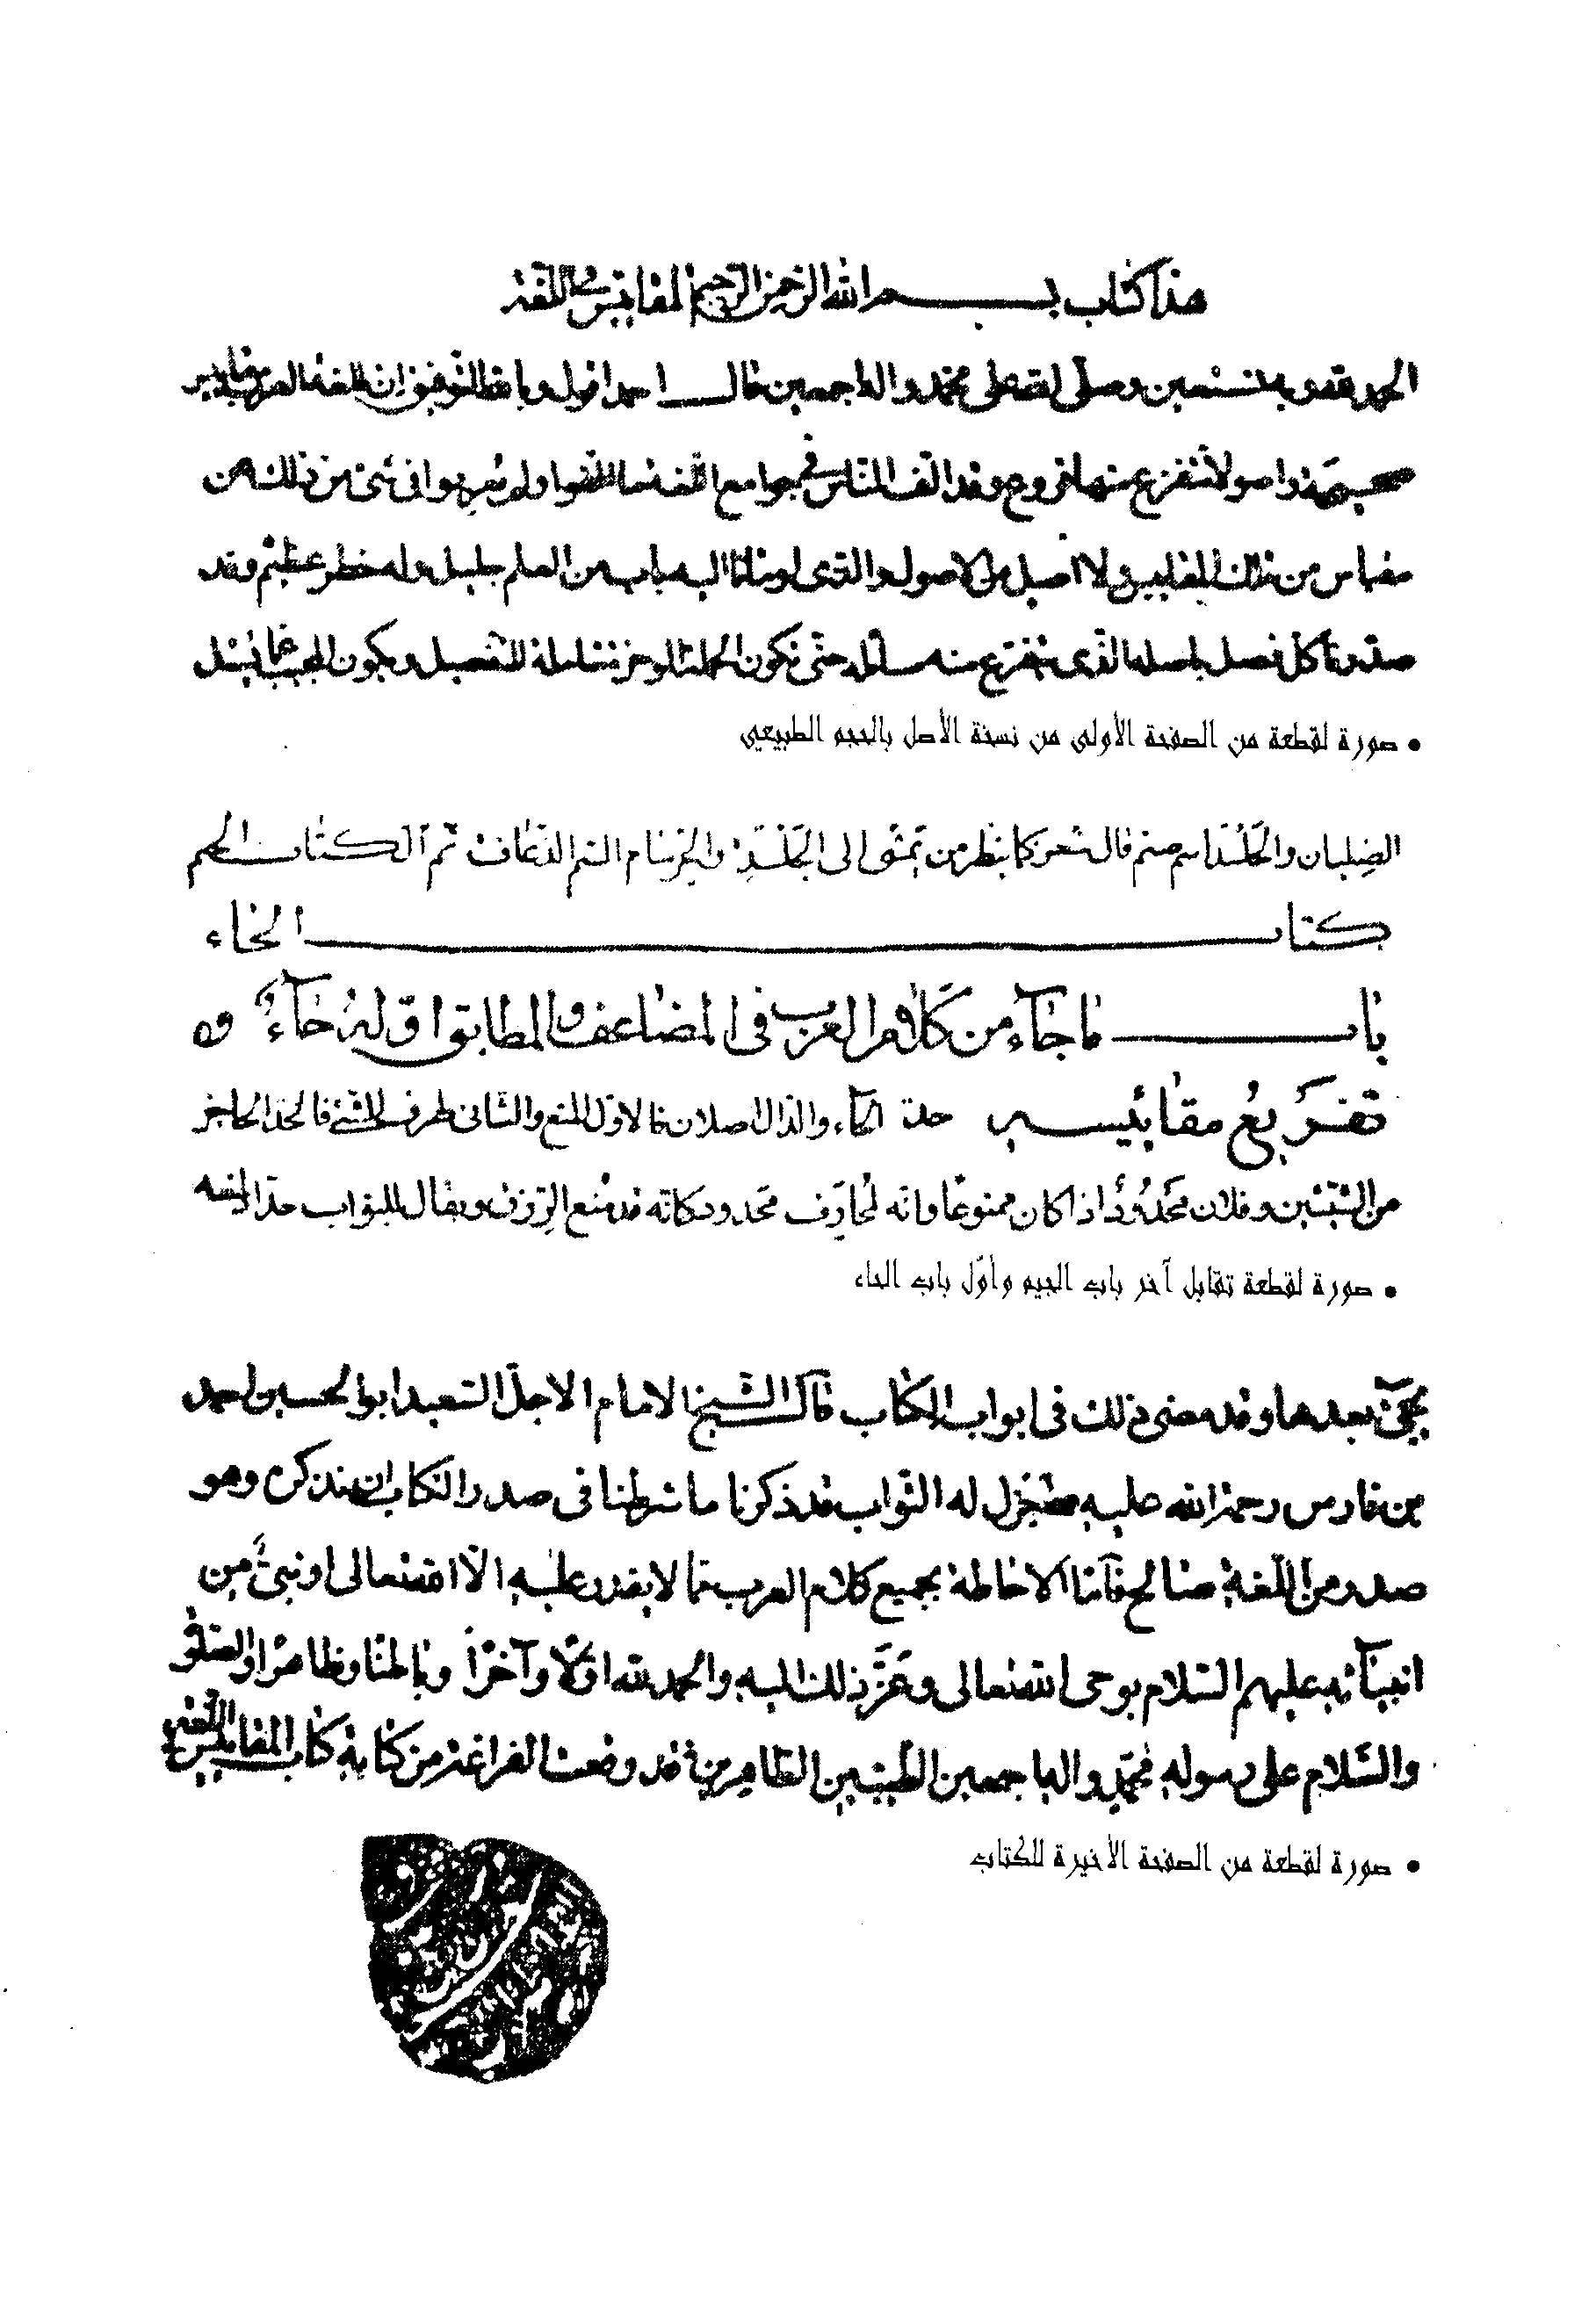 هذا كتاب بسم الله الرحمن الرحيم المقاييس في اللغة
الحمد لله وبه نستعين وصلى الله على محمد وآله اجمعين قال احمد اقول وبالله التوفيق ان للغة العرب مقاييس
صحيحة واصولا تتفرع منها فروع وقد الف الناس في جوامع اللغة ما الفوا ولم يعربوا في شئ من ذلك عن
مقياس من تلك المقاييس ولا اصل من الاصول والذى اومانا اليه باب من العلم جليل وله خطر عظيم وقد
صدرنا كل فصل باصله الذى يتفرع منه مسائله حتى تكون الجملة الموجزة شاملة للتفصيل ويكون المجيب عما يسئل
• صورة لقطعة من الصفحة الأولى من نسخة الأصل بالحجم الطبيعي
الصلبان والجَلْسَد اسم صنم قال شعر كما بيقر من يَمشى الى الجَلْسَدِ والجرسام السم الذعاف تم آلكتاب الجيم
كتاب الخاء
باب ما جآء من كلام العرب فى المضاعف والمطابق اوّله حآء و
تفريع مقائيسه حدّ الحآء والدال اصلان فالاوّل المنع والثانى طرف الشئ فالحدّ الحاجز
من الشيئين وفلان محدُودٌ اذا كان ممنوعًا وانّه لمُحارَف محدود كانّه قد مُنع الرّزق ويقال للبوّاب حدّاد لمنعه
• صورة لقطعة تقابل آخر باب الجيم وأوّل باب الحاء
يجئ بعدها وقد مضى ذلك فى ابواب الكتاب قال الشيخ الامام الاجلّ السّعيد ابو الحسين احمد
بن فارس رحمة الله عليه واجزل له الثّواب قد ذكرنا ما شرطنا فى صدر الكتاب ان نذكره وهو
صدر من اللّغة صالح فآمّا الاحاطة بجميع كلام العرب ممّا لا يقدر عليه الّا الله تعالى او نبىٌّ من
انبيآئه عليهم السّلام بوحى الله تعالى وعزّ ذلك اليه والحمد لله اوّلًا وآخرًا وباطنًا وظاهرًا والصلوة
والسّلام على رسوله محمّدٍ وآله اجمعين الطّيّبين الطّاهرين قد وقعت الفراغة من كتابة كتاب المقائيس اللّغة
• صورة لقطعة من الصفحة الأخيرة للكتاب